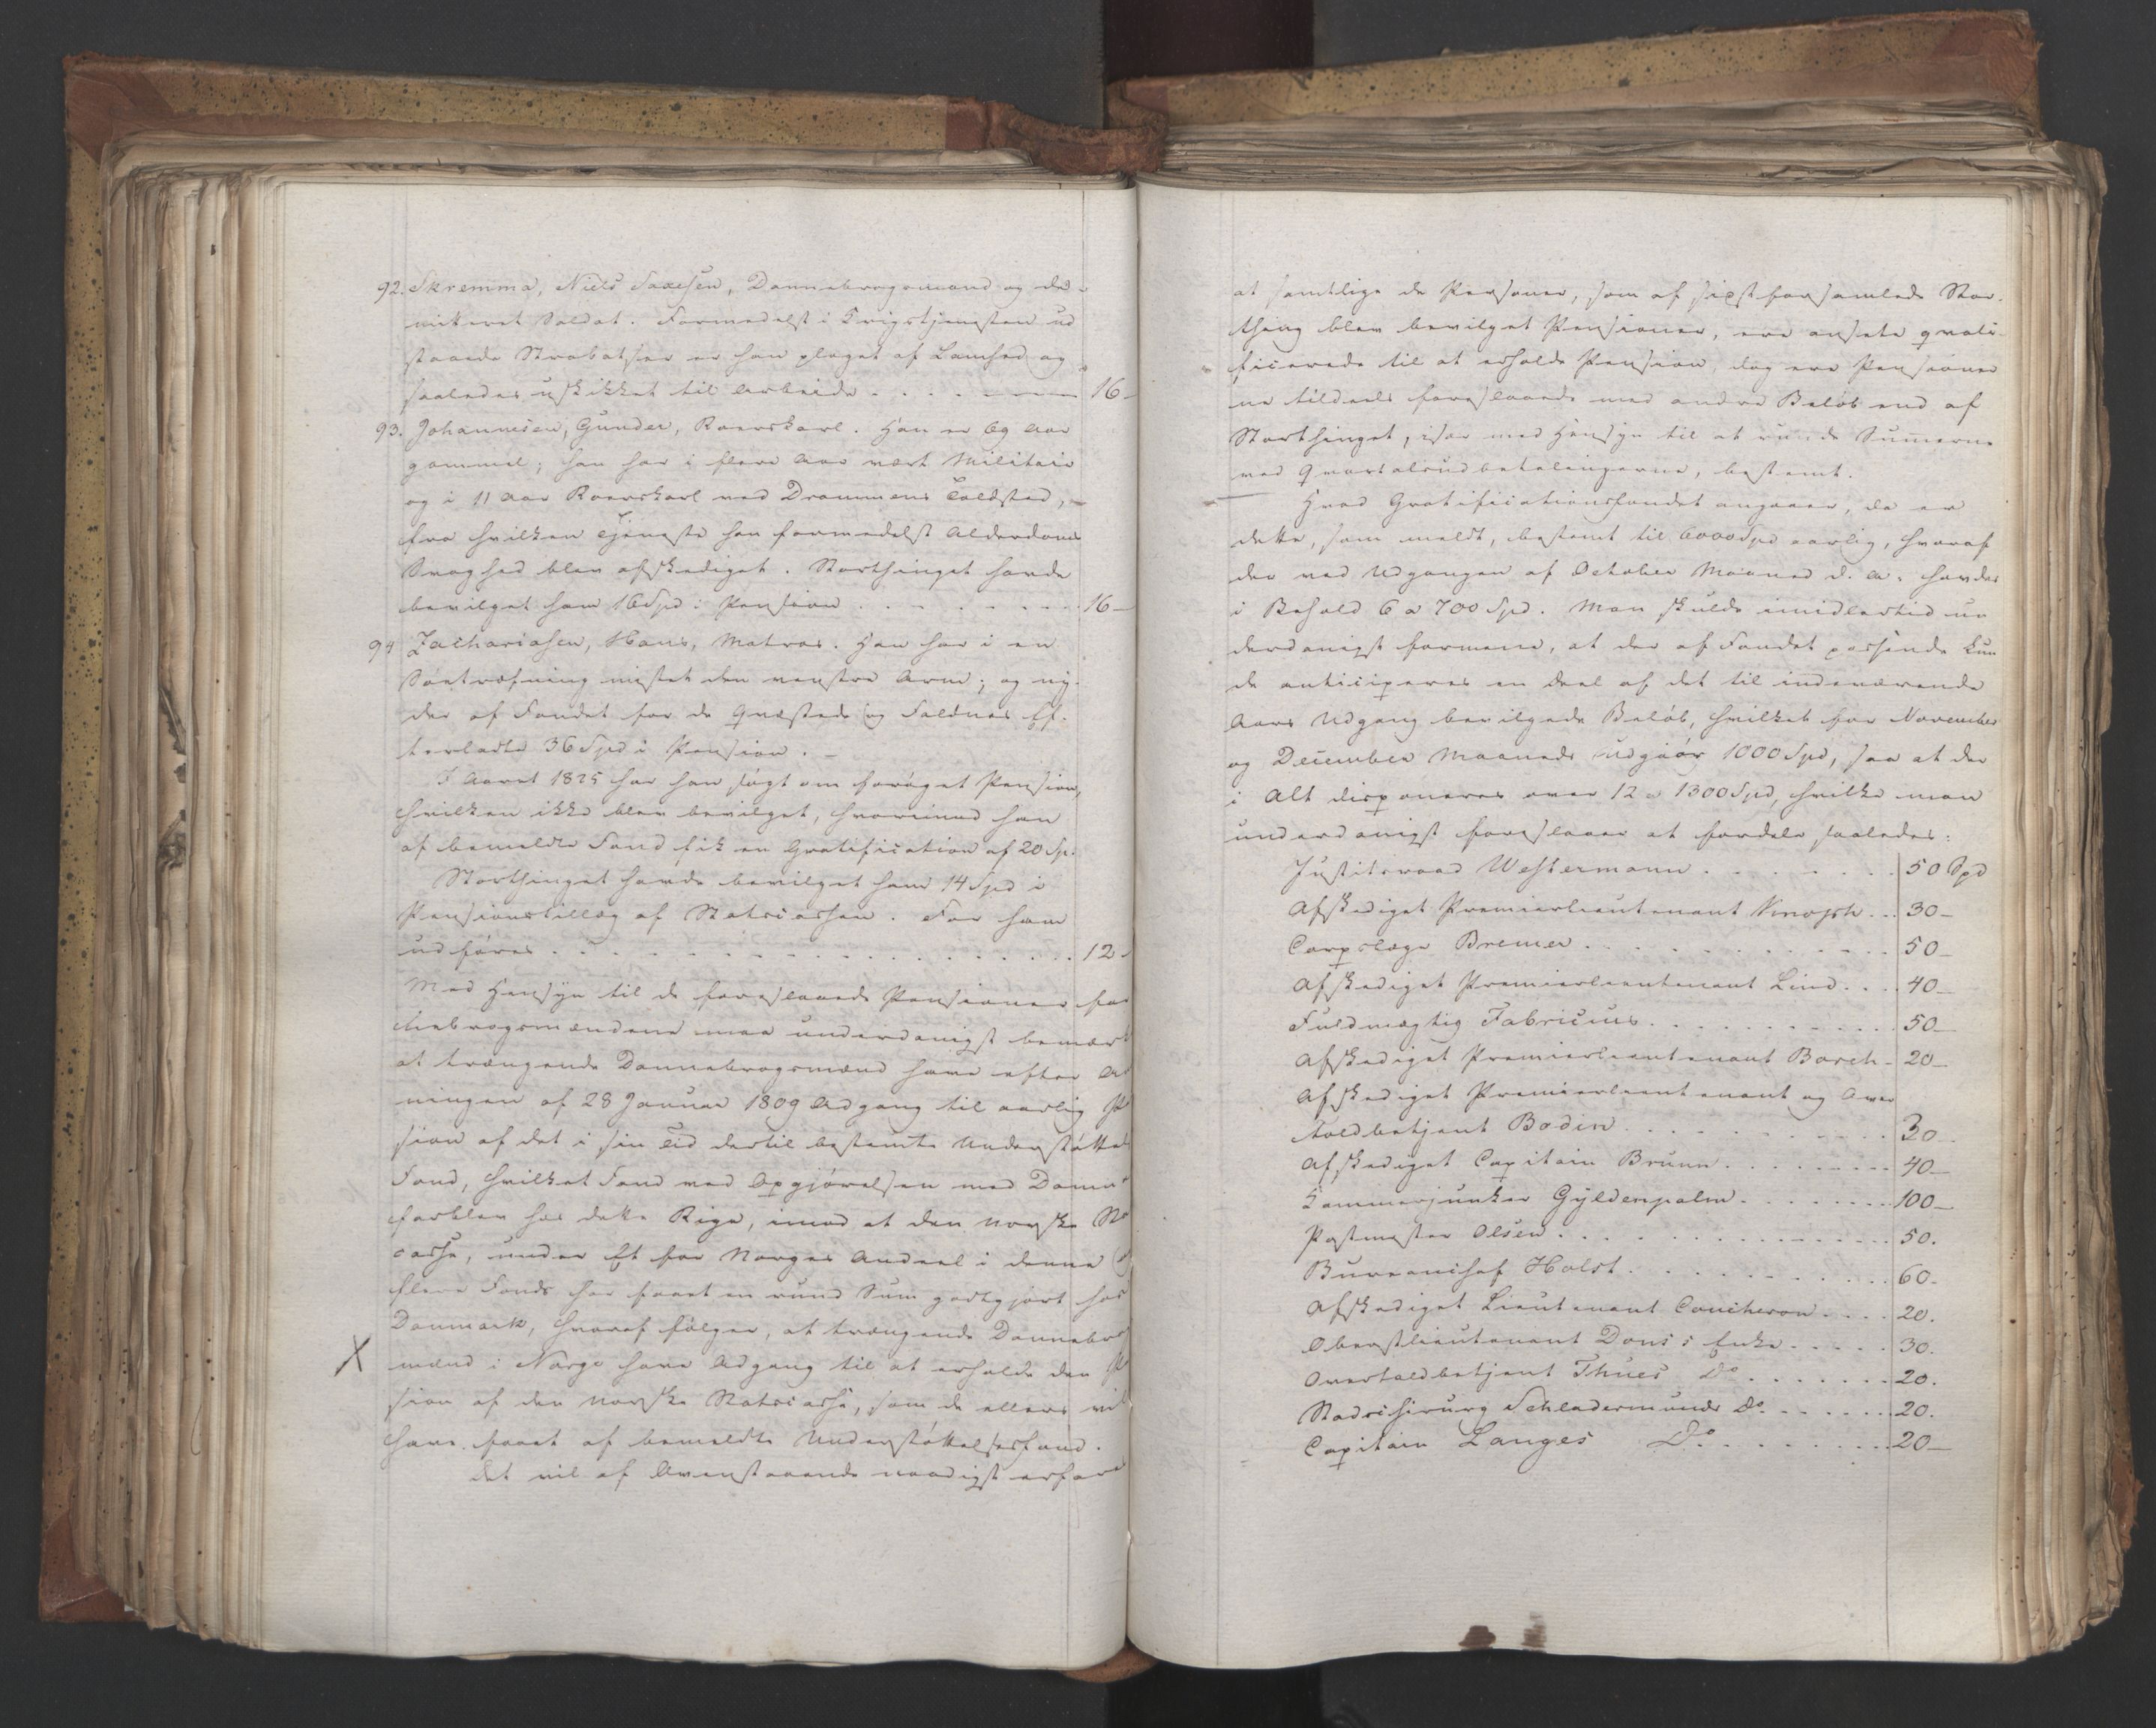 92. Skremma, Niels Saxesen, Dannebrogsmand og de-
mitteret Soldat. Formedelst i Krigstjenesten ud
staaede Strabatser er han plaget af Lamhed og
saaledes uskikket til Arbeide . . . . 16-
93. Johannesen, Gunder, Roerskarl. Han er 69 Aar
gammel; han har i flere Aar vært Militair
og i 11 Aar Roerskarl ved Drammens Toldsted,
fra hvilken Tjeneste han formedelst Alderdoms
Svaghed blev afskediget. Storthinget havde
bevilget ham 16 Spd i Pension . . . . 16-
94 Zachariasen, Hans, Matros. Han har i en
Søetræfning mistet den venstre Arm; og ny-
der af Fondet for de Qvæstede og Faldnes Ef-
terladte 36 Spd i Pension. -
I Aaret 1825 har han søgt om forøget Pension,
hvilken ikke blev bevilget, hvorimod han
af bemeldte Fond fik en Gratification af 20 Sp.
Storthinget havde bevilget ham 14 Spd i
Pensionstillæg af Statscassen. For ham
udføres . . . . 12-
Med Hensyn til de foreslaaede Pensioner for
nebrogsmændene maa underdanigst bemærk
at trængende Dannebrogsmænd have efter A
ningen af 28 Januar 1809 Adgang til aarlig P
sion af det i sin Tid dertil bestemte Understøttel
Fond, hvilket Fond ved Opgjørelsen med Danm
forblev hos dette Rige, imod at den norske St
casse, under Et for Norges Andeel i denne o
flere Fonds har faaet en rund Sum godtgjort hos
Danmark, hvoraf følger, at trængende Dannebro
mænd i Norge have Adgang til at erholde den P
sion af den norske Statscasse, som de ellers vil
have faaet af bemeldte Understøttelsesfond.
Det vil af Ovenstaaende naadigst erfare
at samtlige de Personer, som af sidst forsamlede Stor-
thing blev bevilget Pensioner, ere ansete qvali-
ficerede til at erholde Pension, dog ere Pensioner
ne tildeels foreslaaede med andre Beløb end af
Storthinget, især med Hensyn til at runde Summerne
ved Qvartalsudbetalingerne, bestemt.
Hvad Gratificationsfondet angaaer, da er
dette, som meldt, bestemt til 6000 Spd aarlig, hvoraf
der ved Udgangen af October Maaned d. A. havdes
i Behold 6 a 700 Spd. Man skulde imidlertid un
derdanigst formene, at der af Fondet passende kun
de anticiperes en Deel af det til indeværende
Aars Udgang bevilgede Beløb, hvilket for November
og December Maaneds udgjør 1000 Spd, saa at der
i Alt disponeres over 12 a 1300 Spd, hvilke man
underdanigst foreslaaer at fordele saaledes:
Justitsraad Westermann . . . . 50 Spd
Afskediget Premierlieutenant . . 30-
Corpslæge Bremer . . . . 50-
Afskediget Premierlieutenant Lind . . . 40-
Fuldmægtig Fabricius . . . . 50-
Afskediget Premierlieutenant Borch - 20-
Afskediget Premierlieutenant og Over
toldbetjent Bodin . . . . 30-
Afskediget Capitain Brunn . . . . 40-
Kammerjunker Gyldenpalm . . . . 100-
Postmester Olsen . . . . 50.
Bureauchef Holst . . . . 60-
Afskediget Lieutenant Coucheron . . . . 20.
Oberstlieutenant Dons's Enke . . . . 30.
Overtoldbetjent Thues Do . . . . 20.
Stadschirurg Schladermunds Do . . . . 20.
Capitain Langes Do . . . . 20-